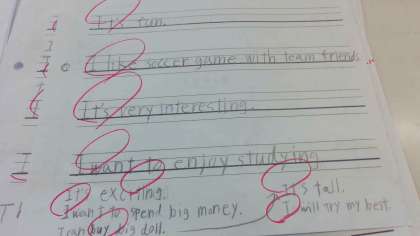 It's fun.
I like soccer game with team friends.
It's very interesting.
I want to enjoy studying
It's exciting.
I want to spend big money.
I can buy big doll.
It's tall.
I will try my best.